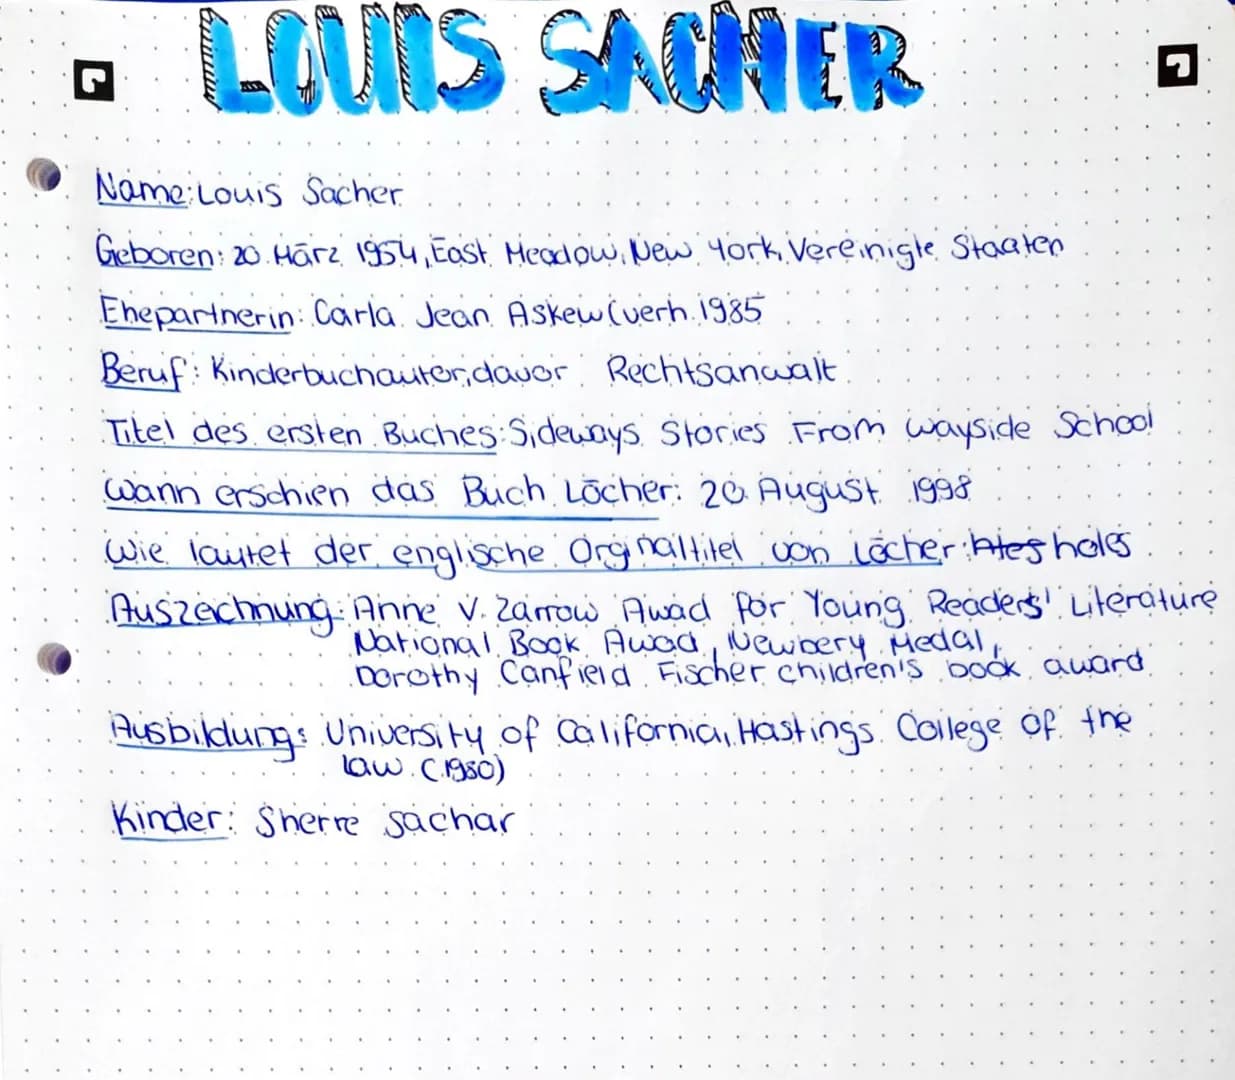 LOUIS SACHER
Name: Louis Sacher
Geboren: 20. März 1954, East Meadow, New York, Vereinigte Staaten
Ehepartnerin: Carla Jean Askew (verh. 1985
Beruf: Kinderbuchautor, davor Rechtsanwalt
Titel des ersten Buches: Sideways Stories From wayside School
Wann erschien das Buch Löcher: 20. August 1998
Wie lautet der englische Orginaltitel von Löcher: holes
Auszeichnung: Anne V. Zarrow Awad for Young Readers' Literature
National Book Awad, Newbery Medal,
Dorothy Canfield Fischer children's book award
Ausbildung: University of California, Hastings College of the
law (1980)
Kinder: Sherre sachar